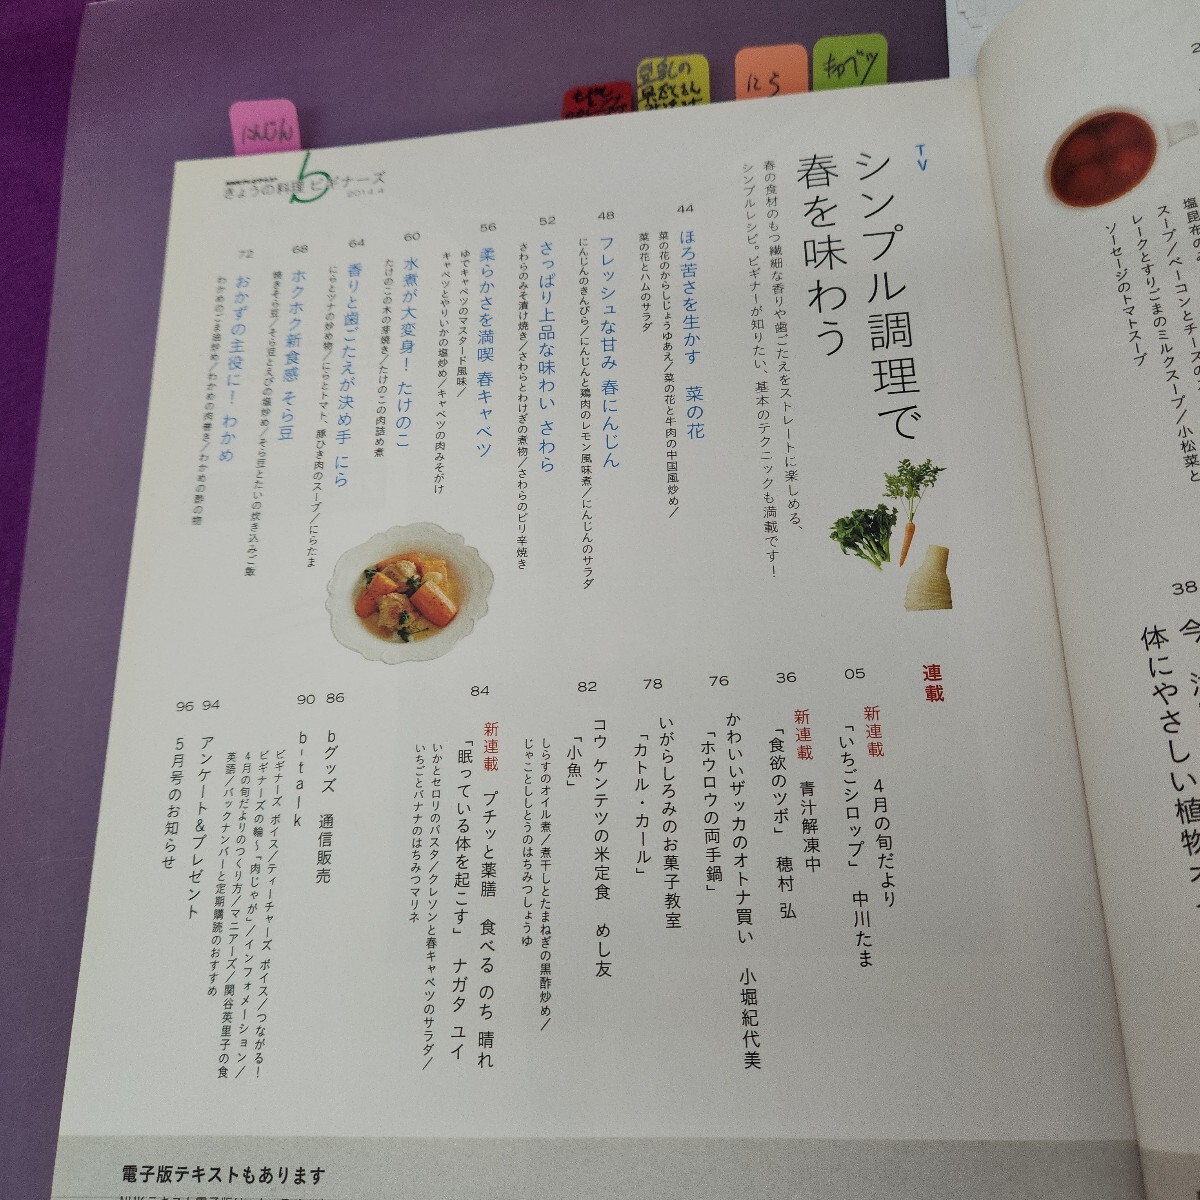 にんじん
豆乳の
にら
キャベツ
きょうの料理ビギナーズ
2014.4
TV
シンプル調理で
春を味わう
春の食材のもつ繊細な香りや歯ごたえをストレートに楽しめる、
シンプルレシピ。ビギナーが知りたい、基本のテクニックも満載です!
44
ほろ苦さを生かす 菜の花
菜の花のからしじょうゆあえ/菜の花と牛肉の中国風炒め/
菜の花とハムのサラダ
48
フレッシュな甘み 春にんじん
にんじんのきんぴら/にんじんと鶏肉のレモン風味煮/にんじんのサラダ
52
さっぱり上品な味わい さわら
さわらのみそ漬け焼き/さわらとわけぎの煮物/さわらのピリ辛焼き
56
柔らかさを満喫 春キャベツ
ゆでキャベツのマスタード風味/
キャベツとやりいかの塩炒め/キャベツの肉みそがけ
60
水煮が大変身! たけのこ
たけのこの木の芽焼き/たけのこの肉詰め煮
64
香りと歯ごたえが決め手 にら
にらとツナの炒め物/にらとトマト、豚ひき肉のスープ/にらたま
68
ホクホク新食感 そら豆
焼きそら豆/そら豆とえびの塩炒め/そら豆とたいの炊き込みご飯
72
おかずの主役に! わかめ
わかめのごま油炒め/わかめの肉巻き/わかめの酢の物
連載
05
新連載 4月の旬だより
「いちごシロップ」 中川たま
36
新連載 青汁解凍中
「食欲のツボ」 穂村 弘
76
かわいいザッカのオトナ買い 小堀紀代美
「ホウロウの両手鍋」
78
いがらしろみのお菓子教室
「カトル・カール」
82
コウ ケンテツの米定食 めし友
「小魚」
しらすのオイル煮/煮干しとたまねぎの黒酢炒め/
じゃことししとうのはちみつしょうゆ
84
新連載 プチッと薬膳 食べる のち 晴れ
「眠っている体を起こす」 ナガタ ユイ
いかとセロリのパスタ/クレソンと春キャベツのサラダ/
いちごとバナナのはちみつマリネ
86
bグッズ 通信販売
90
b-talk
ビギナーズ ボイス/ティーチャーズ ボイス/つながる!
ビギナーズの輪〜「肉じゃが」/インフォメーション/
4月の旬だよりのつくり方/マニアーズ/関谷英里子の食
英語/バックナンバーと定期購読のおすすめ
94
アンケート&プレゼント
96
5月号のお知らせ
電子版テキストもあります
塩昆布の
スープ/ベーコンとチーズの
レークとすりごまのミルクスープ/小松菜と
ソーセージのトマトスープ
38
体にやさしい植物